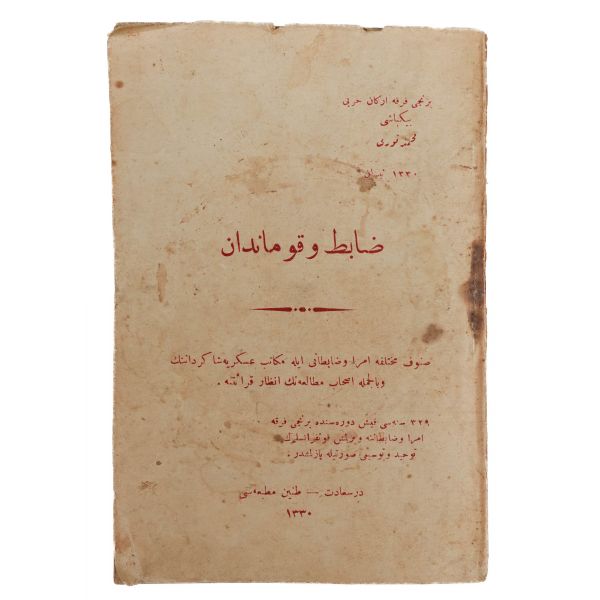 برنجی فرقه ارکان حربی
بیکباشی
محمد نوری
۱۳۳۰ نیسان
ضابط و قوماندان
صنوف مختلفه امرا و ضابطانی ایله مکاتب عسکریه شاکرداننك
وبالجمله اصحاب مطالعه‌نك انظار قرائتنه .
۳۲۹ سنه‌سی قیش دوره‌سنده برنجی فرقه
امرا و ضابطاننه ویریلمش قونفرانسلرك
توحید وتوسیعی صورتیله یازلمشدر .
درسعادت — طنین مطبعه‌سی
۱۳۳۰